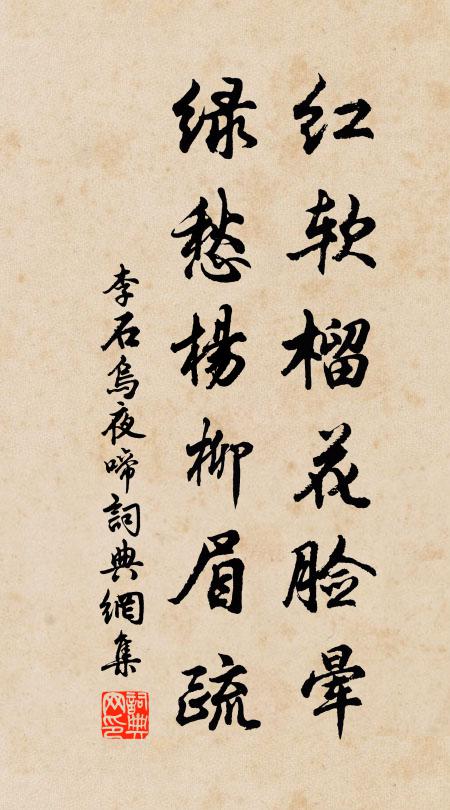 红软榴花脸晕
绿愁杨柳眉疏
李石烏夜啼詞典網集
詞典网印